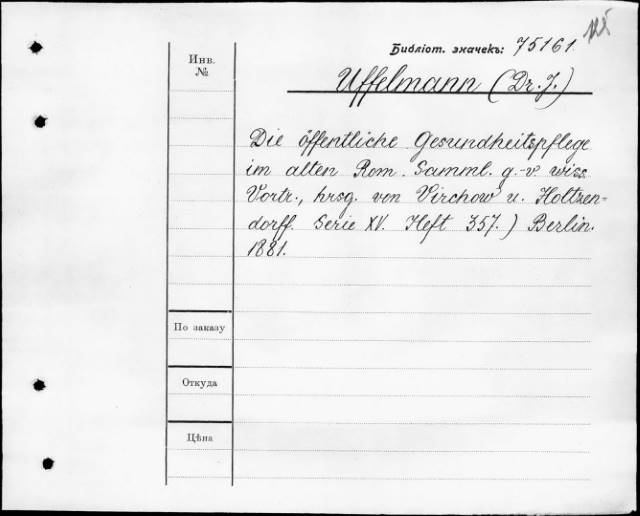 Библіот. значекъ: 75161.
Инв.
№
Uffelmann (Dr. J.)
Die öffentliche Gesundheitspflege
im alten Rom. Samml. g.-v. wiss
Vortr., hrsg. von Virchow u. Holtzen-
dorff. Serie XV. Heft 357.) Berlin.
1881.
По заказу
Откуда
Цѣна